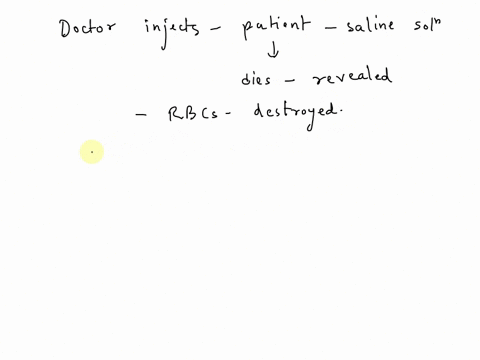 Doctor injects - patient - saline solⁿ
↓
dies - revealed
- RBCs - destroyed.